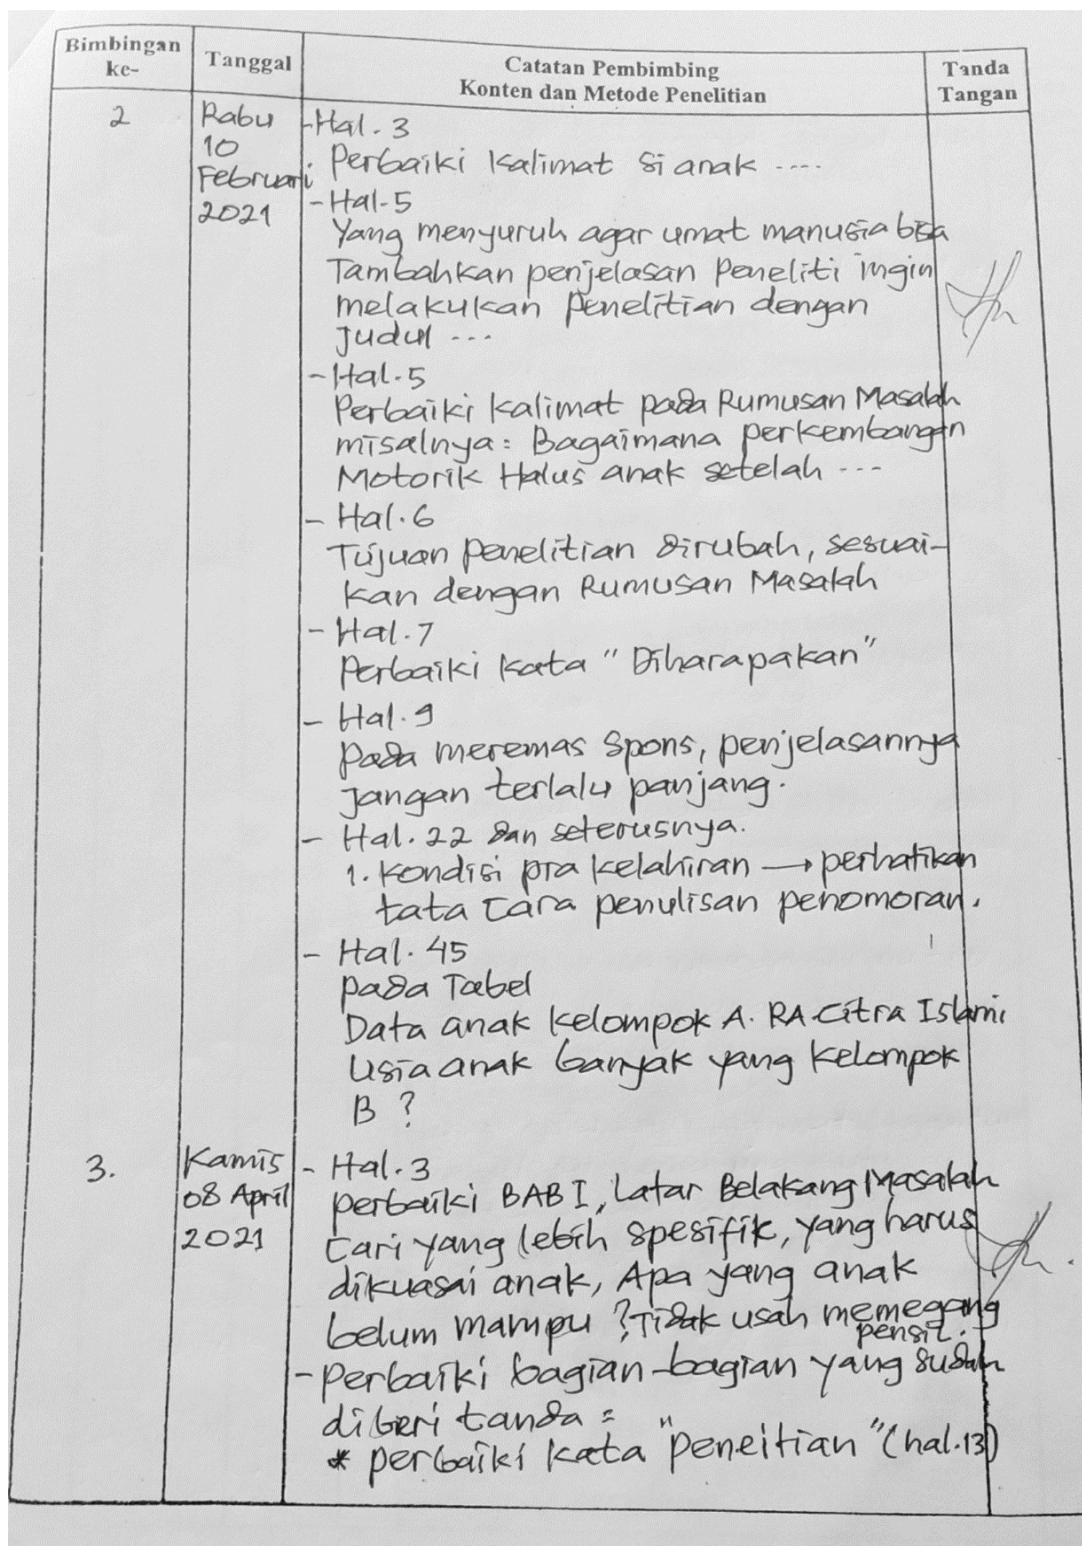 Bimbingan ke-
Tanggal
Catatan Pembimbing
Konten dan Metode Penelitian
Tanda Tangan
2
Rabu
10
Februari
2021
- Hal. 3
Perbaiki kalimat Si anak ....
- Hal. 5
Yang menyuruh agar umat manusia bisa
Tambahkan penjelasan Peneliti ingin
melakukan Penelitian dengan
Judul ...
- Hal. 5
Perbaiki kalimat pada Rumusan Masalah
misalnya: Bagaimana perkembangan
Motorik Halus anak setelah ...
- Hal. 6
Tujuan Penelitian dirubah, sesuai-
kan dengan Rumusan Masalah
- Hal. 7
Perbaiki kata "Diharapakan"
- Hal. 9
Pada meremas Spons, penjelasannya
Jangan terlalu panjang.
- Hal. 22 dan seterusnya.
1. Kondisi pra kelahiran → perhatikan
tata cara penulisan penomoran.
- Hal. 45
pada Tabel
Data anak kelompok A. RA. Citra Islami
Usia anak banyak yang kelompok
B ?
3.
Kamis
08 April
2021
- Hal. 3
Perbaiki BAB I, Latar Belakang Masalah
Cari yang lebih spesifik, yang harus
dikuasai anak, Apa yang anak
belum mampu ? Tidak usah memegang
pensil.
- Perbaiki bagian-bagian yang sudah
diberi tanda =
* perbaiki kata "peneitian" (hal.13)